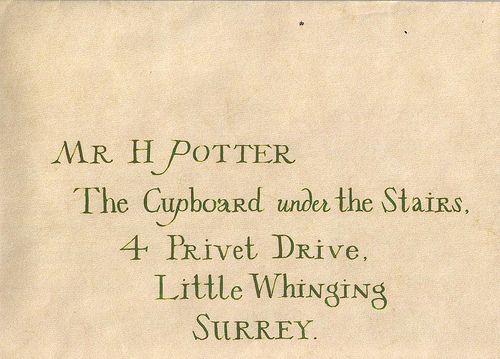 MR H POTTER
The Cupboard under the Stairs,
4 Privet Drive,
Little Whinging
SURREY.